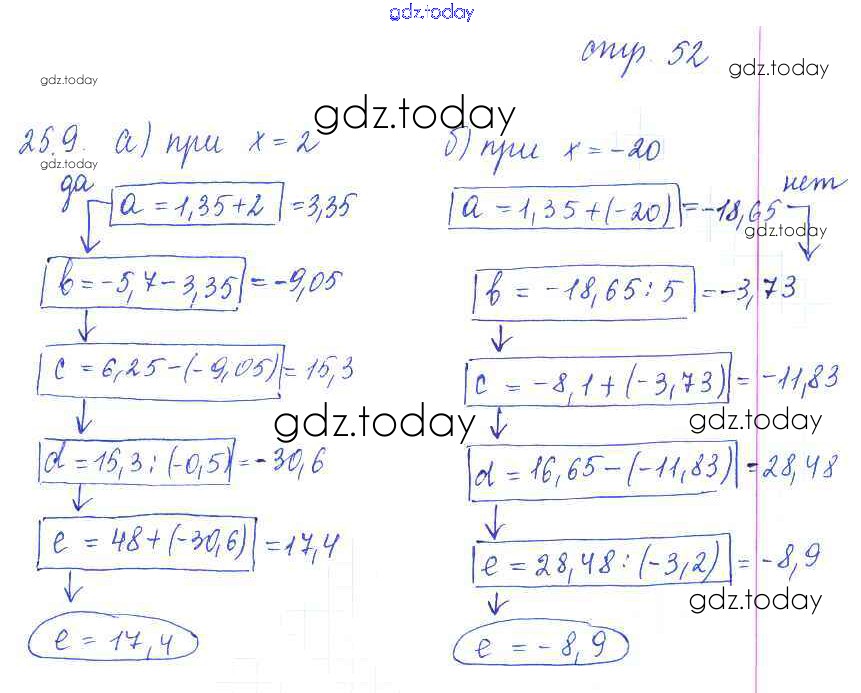 gdz.today
стр. 52
gdz.today
gdz.today
gdz.today
25.9. а) при x = 2
gdz.today
да
a = 1,35 + 2 = 3,35
b = -5,7 - 3,35 = -9,05
c = 6,25 - (-9,05) = 15,3
gdz.today
d = 15,3 : (-0,5) = -30,6
e = 48 + (-30,6) = 17,4
e = 17,4
б) при x = -20
нет
a = 1,35 + (-20) = -18,65
gdz.today
b = -18,65 : 5 = -3,73
c = -8,1 + (-3,73) = -11,83
gdz.today
d = 16,65 - (-11,83) = 28,48
e = 28,48 : (-3,2) = -8,9
gdz.today
e = -8,9